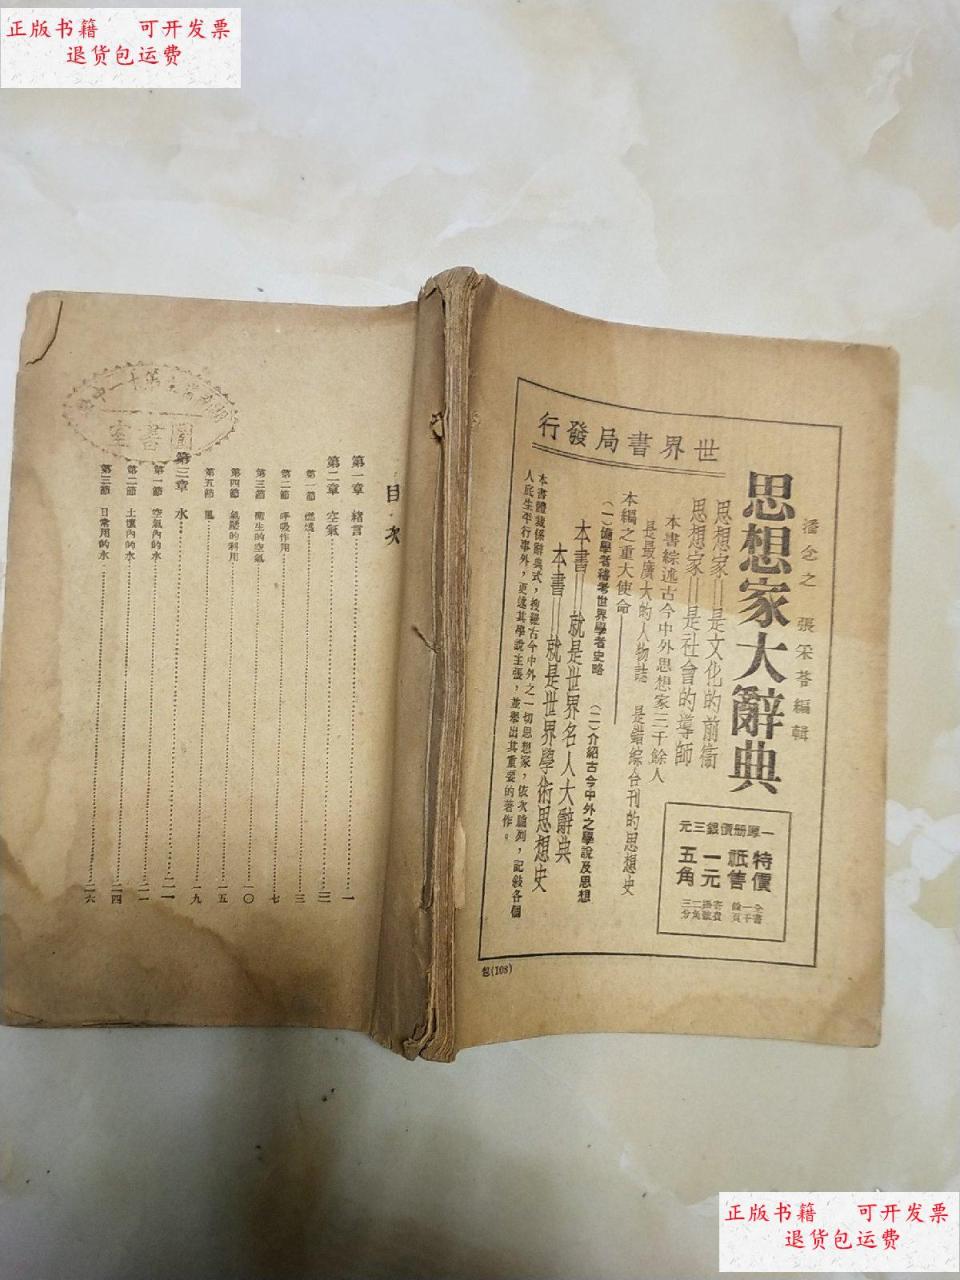 正版书籍 可开发票
退货包运费
世界書局發行
潘念之 張采苓編輯
思想家大辭典
思想家——是文化的前衞
思想家——是社會的導師
本書綜述古今中外思想家三千餘人
是最廣大的人物誌 是錯綜合刊的思想史
本編之重大使命
(一)備學者稽考世界學者史略 (二)介紹古今中外之學說及思想
本書——就是世界名人大辭典
本書——就是世界學術思想史
本書體裁係辭典式，搜羅古今中外之一切思想家，依次臚列，記敍各個
人底生平行事外，更述其學說主張，並舉出其重要的著作。
一厚册價銀三元
特價
祇售
一元
五角
全書
一千
餘頁
寄費
掛號
二角
三分
包(108)
目次
第一章 緒言 一
第二章 空氣 三
第一節 燃燒 三
第二節 呼吸作用 七
第三節 衛生的空氣 一〇
第四節 氣壓的利用 一五
第五節 風 一九
第三章 水 二一
第一節 空氣內的水 二一
第二節 土壤內的水 二四
第三節 日常用的水 二六
圖書室
正版书籍 可开发票
退货包运费